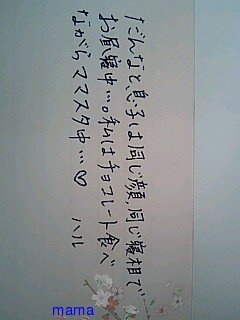 だんなと、息子は同じ顔、同じ寝相で
お昼寝中…。私はチョコレート食べ
ながらママスタ中…♡ ハル
mama